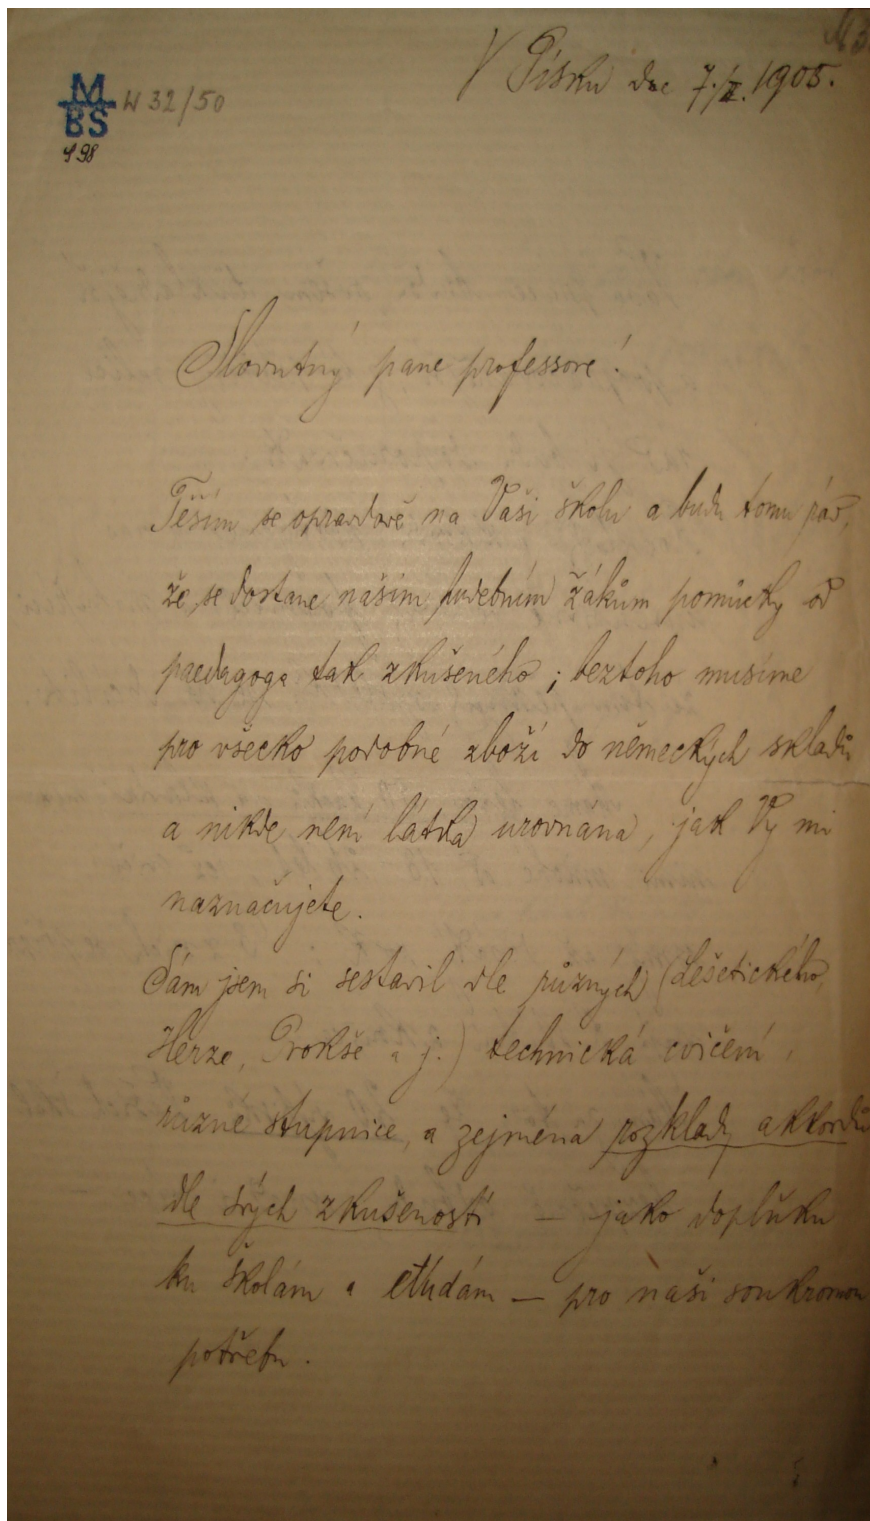 V Písku dne 7./II. 1905.
M
BS
W 32/50
498
Slovutný pane professore!
Těším se opravdově na Vaši školu a budu tomu rád,
že se dostane našim hudebním žákům pomůcky od
paedagoga tak zkušeného; beztoho musíme
pro všecko podobné zboží do německých skladů
a nikde není látka urovnána, jak Vy mi
naznačujete.
Sám jsem si sestavil dle různých (Lešetického,
Herze, Prokše a j.) technická cvičení,
různé stupnice, a zejména rozklady akkordů
dle svých zkušeností — jako doplňku
ku školám a etudám — pro naši soukromou
potřebu.